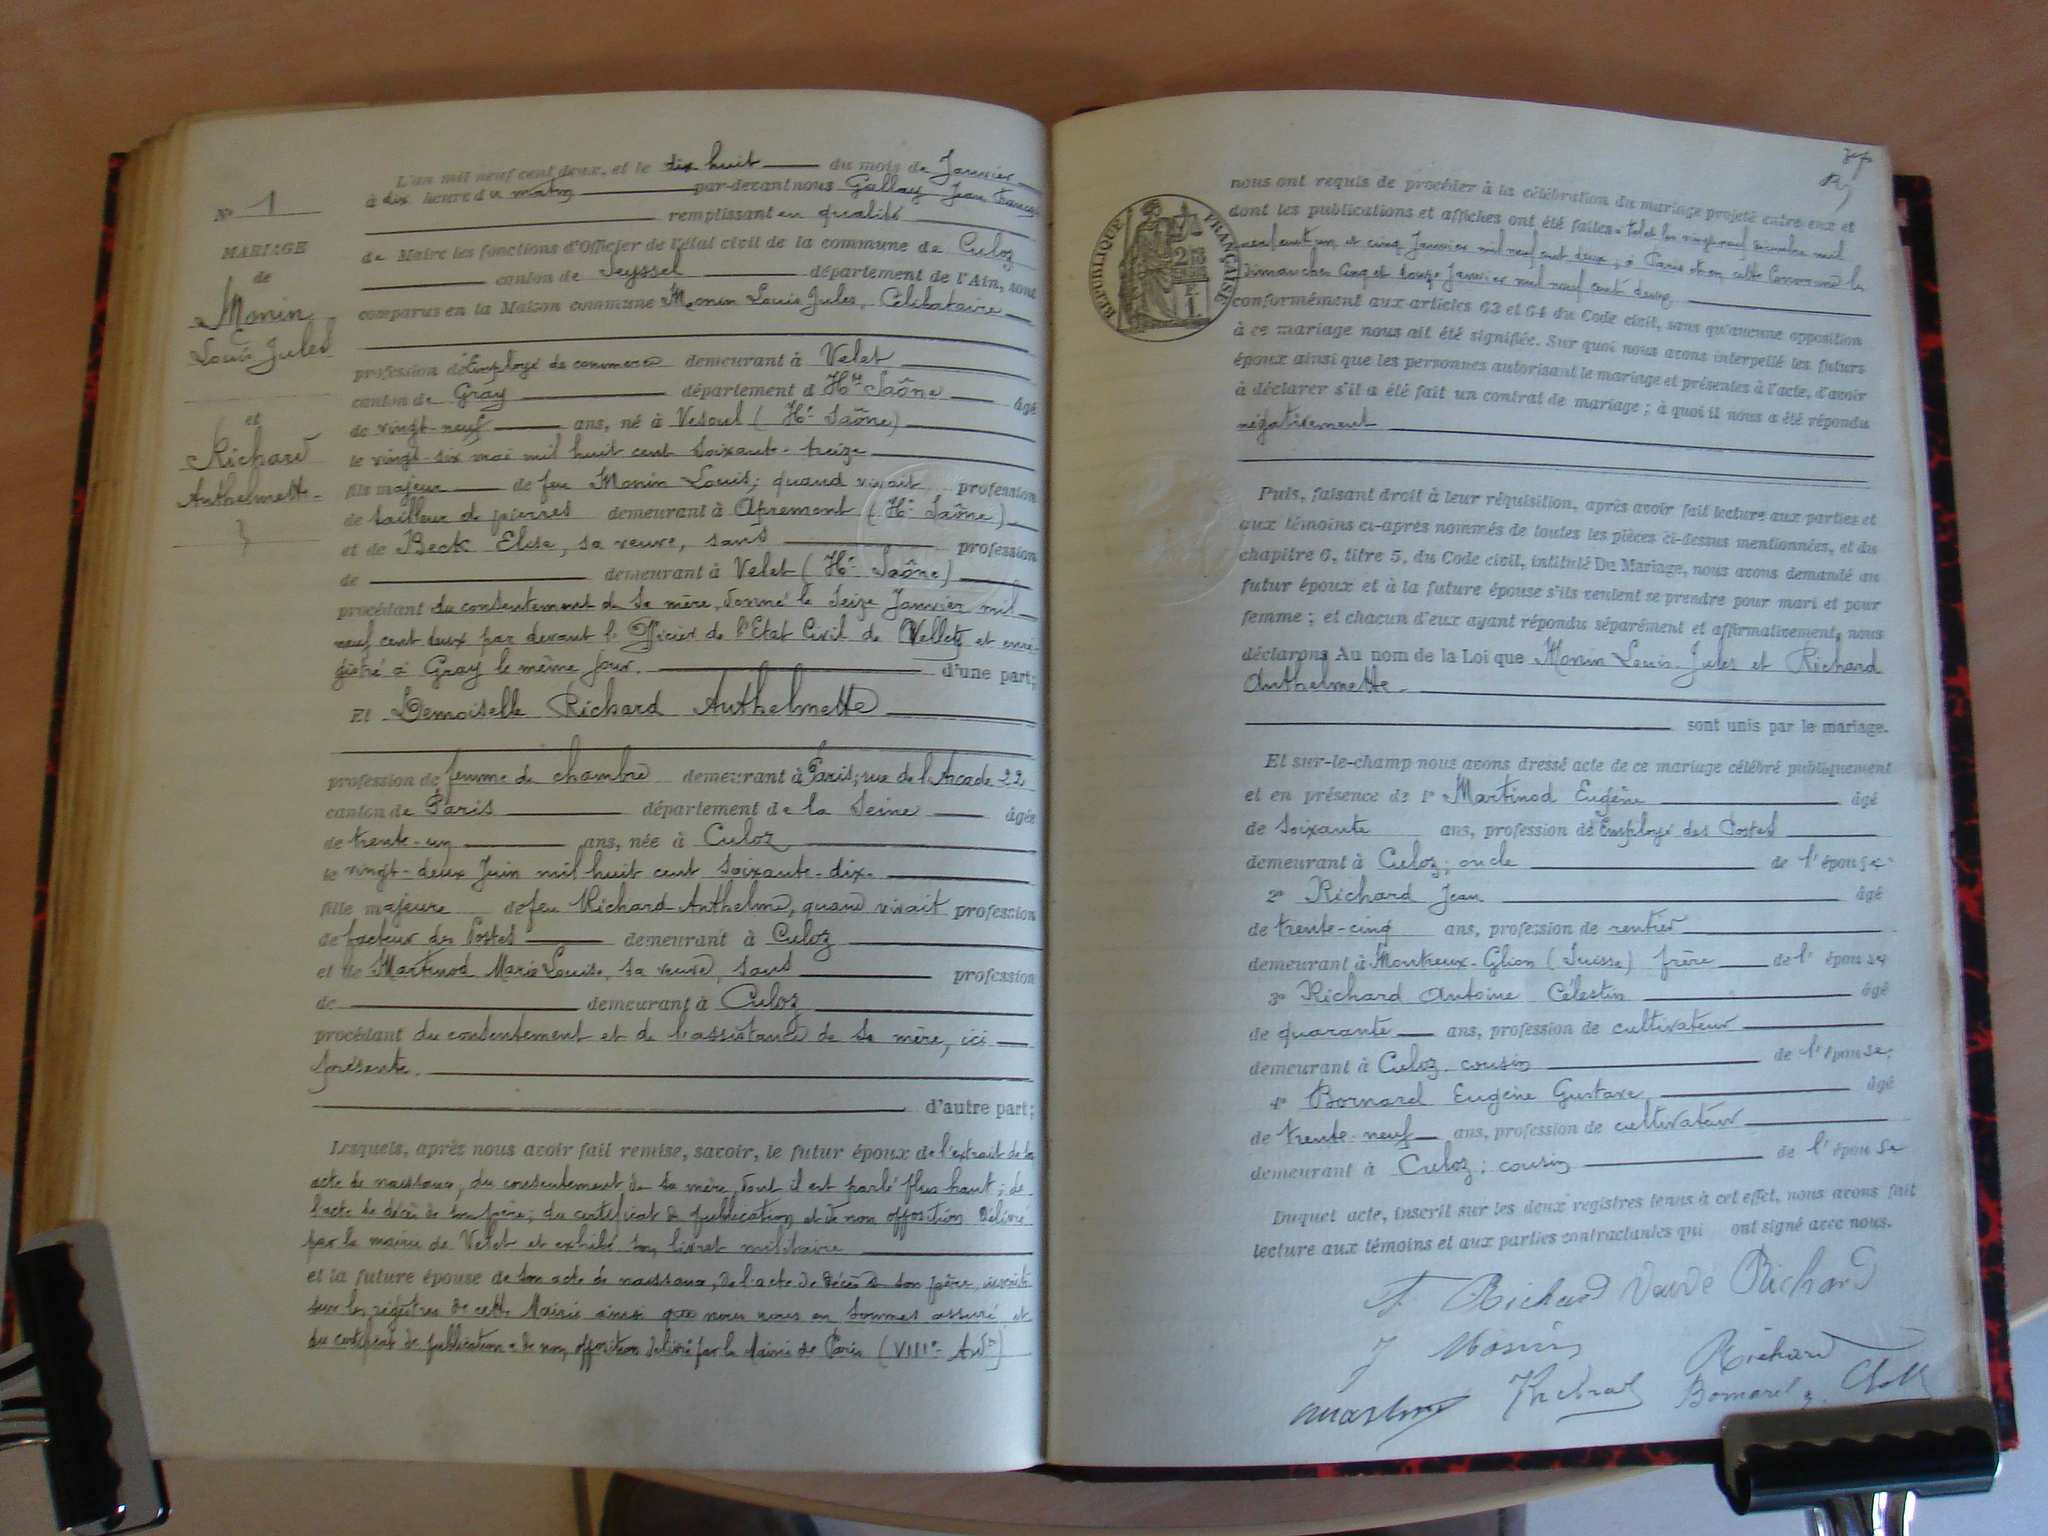 L'an mil neuf cent deux, et le dix huit du mois de Janvier
à dix heure du matin par-devant nous Gallay Jean François
remplissant en qualité
de Maire les fonctions d'Officier de l'état civil de la commune de Culoz
canton de Seyssel département de l'Ain, sont
comparus en la Maison commune Monin Louis Jules, Célibataire
profession d'Employé de commerce demeurant à Velet
canton de Gray département d Hte Saône âgé
de vingt-neuf ans, né à Vesoul (Hte Saône)
le vingt-six mai mil huit cent soixante-treize
fils majeur de feu Monin Louis; quand vivait profession
de tailleur de pierres demeurant à Apremont (Hte Saône)
et de Beck Elise, sa veuve, sans profession
de demeurant à Velet (Hte Saône)
procédant du consentement de sa mère, donné le seize Janvier mil
neuf cent deux par devant l'Officier de l'Etat Civil de Velletz et enre-
gistré à Gray le même jour. d'une part;
Et Demoiselle Richard Anthelmette
profession de femme de chambre demeurant à Paris, rue de l'Arcade 22
canton de Paris département de la Seine âgée
de trente-un ans, née à Culoz
le vingt-deux Juin mil huit cent soixante-dix.
fille majeure de feu Richard Anthelme, quand vivait profession
de facteur des Postes demeurant à Culoz
et de Martinod Marie Louise, sa veuve, sans profession
de demeurant à Culoz
procédant du consentement et de l'assistance de sa mère, ici
présente.
d'autre part;
Lesquels, après nous avoir fait remise, savoir, le futur époux de l'extrait de son
acte de naissance, du consentement de sa mère, dont il est parlé plus haut; de
l'acte de décès de son père; du certificat de publication et de non opposition délivré
par la mairie de Velet et exhibé son livret militaire
et la future épouse de son acte de naissance, de l'acte de décès de son père, inscrits
sur les régistres de cette Mairie ainsi que nous nous en sommes assuré et
du certificat de publication & de non opposition délivré par la Mairie de Paris (VIIIe Ardt)
No 1
MARIAGE
de
Monin
Louis Jules
et
Richard
Anthelmette
RÉPUBLIQUE FRANÇAISE
nous ont requis de procéder à la célébration du mariage projeté entre eux et
dont les publications et affiches ont été faites à Velet les vingt neuf décembre mil
neuf cent un et cinq Janvier mil neuf cent deux; à Paris et en cette Commune les
Dimanches cinq et douze Janvier mil neuf cent deux
conformément aux articles 63 et 64 du Code civil, sans qu'aucune opposition
à ce mariage nous ait été signifiée. Sur quoi nous avons interpellé les futurs
époux ainsi que les personnes autorisant le mariage et présentes à l'acte, d'avoir
à déclarer s'il a été fait un contrat de mariage; à quoi il nous a été répondu
négativement
Puis, faisant droit à leur réquisition, après avoir fait lecture aux parties et
aux témoins ci-après nommés de toutes les pièces ci-dessus mentionnées, et du
chapitre 6, titre 5, du Code civil, intitulé Du Mariage, nous avons demandé au
futur époux et à la future épouse s'ils veulent se prendre pour mari et pour
femme; et chacun d'eux ayant répondu séparément et affirmativement, nous
déclarons Au nom de la Loi que Monin Louis Jules et Richard
Anthelmette.
sont unis par le mariage.
Et sur-le-champ nous avons dressé acte de ce mariage célébré publiquement
et en présence de 1º Martinod Eugène âgé
de soixante ans, profession d'Employé des Postes
demeurant à Culoz; oncle de l'épouse
2º Richard Jean âgé
de trente-cinq ans, profession de rentier
demeurant à Montreux-Glion (Suisse) frère de l'épouse
3º Richard Antoine Célestin âgé
de quarante ans, profession de cultivateur
demeurant à Culoz cousin de l'épouse
4º Bornard Eugène Gustave âgé
de trente-neuf ans, profession de cultivateur
demeurant à Culoz; cousin de l'épouse
Duquel acte, inscrit sur les deux registres tenus à cet effet, nous avons fait
lecture aux témoins et aux parties contractantes qui ont signé avec nous.
Richard Veuve Richard
Monin Richard